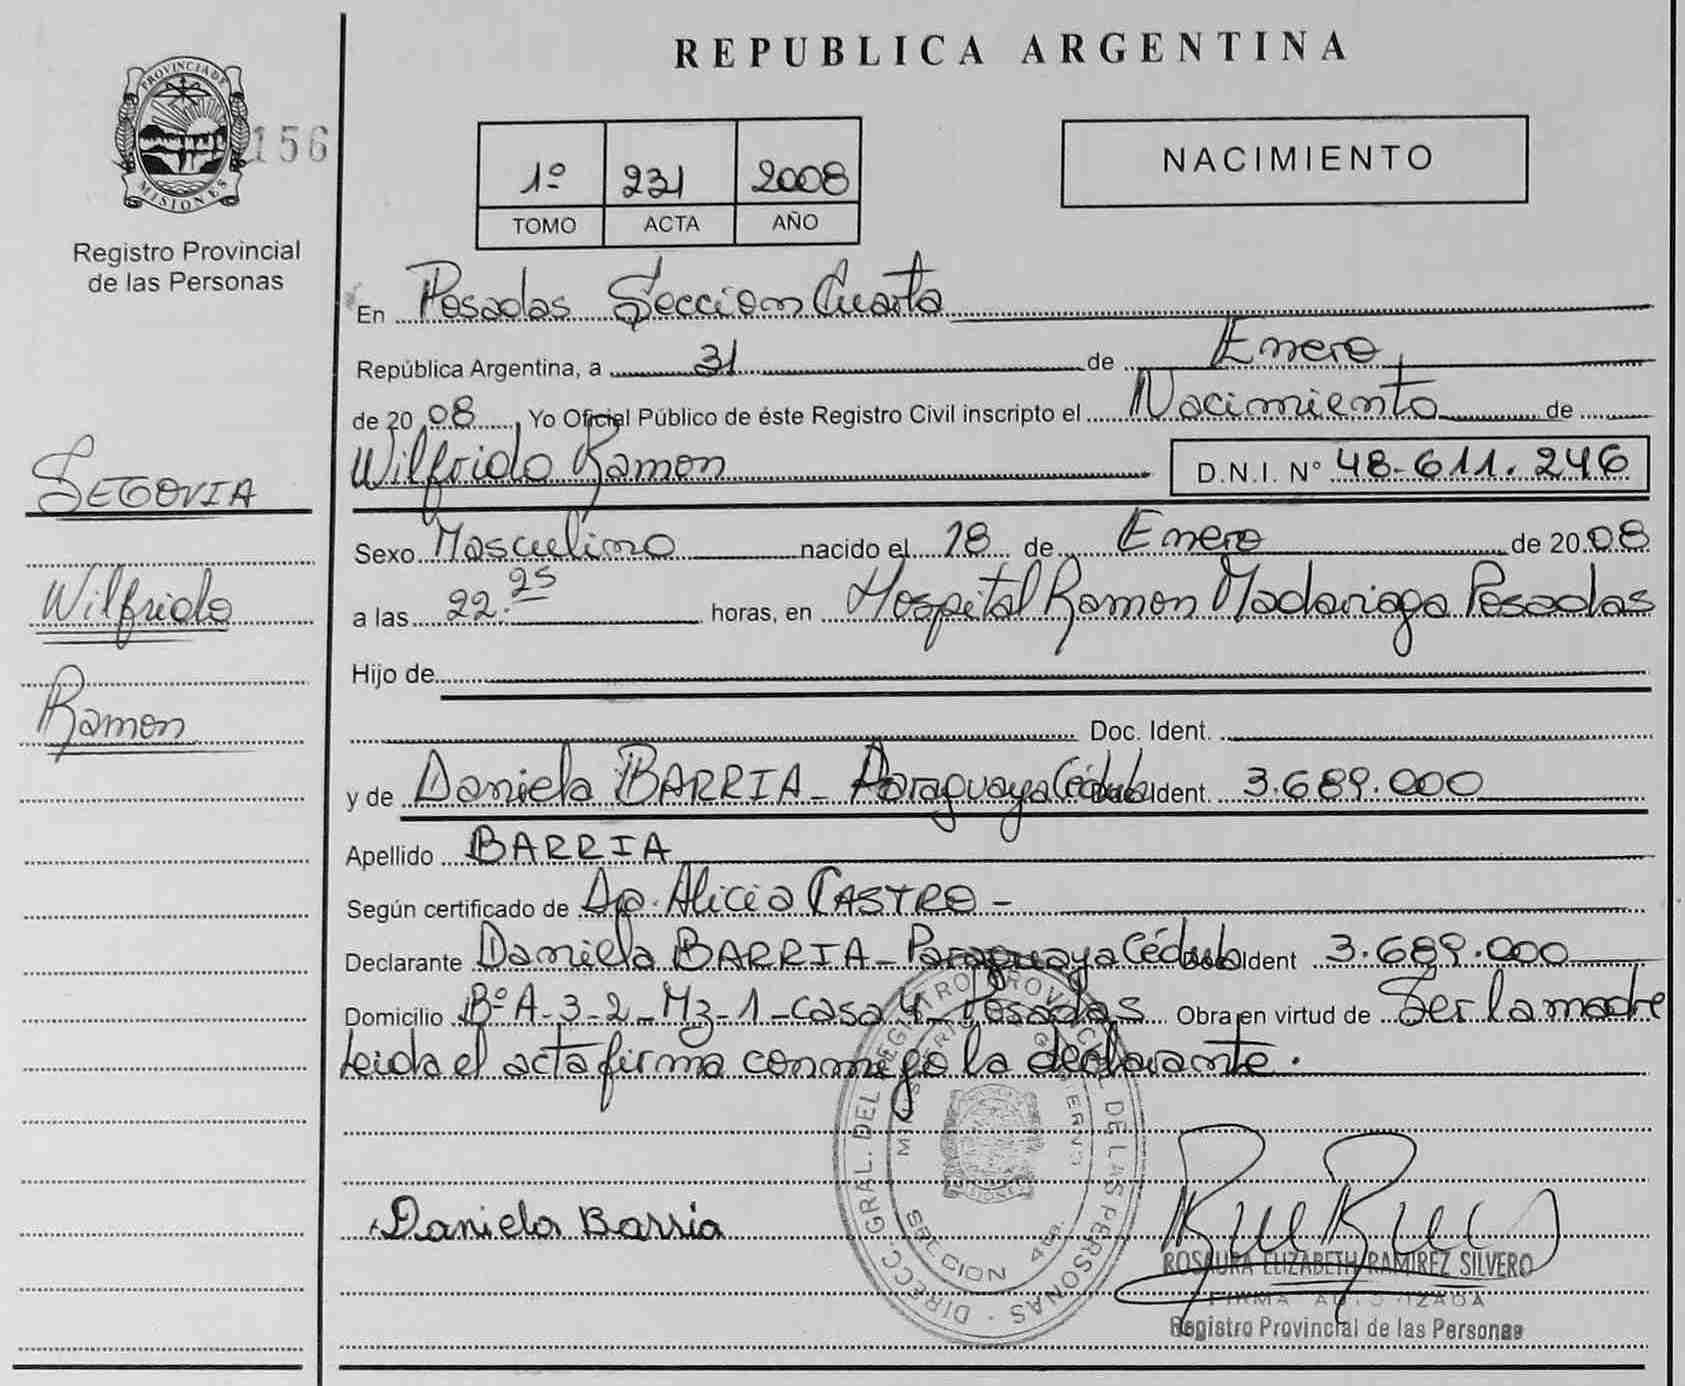 REPUBLICA ARGENTINA
PROVINCIA DE
MISIONES
156
Registro Provincial
de las Personas
1º 231 2008
TOMO ACTA AÑO
NACIMIENTO
SEGOVIA
Wilfrido
Ramon
En Posadas Seccion Cuarta
República Argentina, a 31 de Enero
de 20 08, Yo Oficial Público de éste Registro Civil inscripto el Nacimiento de
Wilfrido Ramon D.N.I. Nº 48.611.246
Sexo Masculino nacido el 18 de Enero de 20 08
a las 22.25 horas, en Hospital Ramon Madariaga Posadas
Hijo de
Doc. Ident.
y de Daniela BARRIA - Paraguaya Cédula Ident. 3.689.000
Apellido BARRIA
Según certificado de Dra. Alicia CASTRO -
Declarante Daniela BARRIA - Paraguaya Cédula Ident 3.689.000
Domicilio Bº A-3-2-Mz-1-casa 4-Posadas Obra en virtud de Ser la madre
leida el acta firma conmigo la declarante.
DIRECC. GRAL. DEL REGISTRO PROVINCIAL DE LAS PERSONAS
SECCION 4ta.
MISIONES
Daniela Barria
ROSAURA ELIZABETH RAMIREZ SILVERO
FIRMA AUTORIZADA
Registro Provincial de las Personas